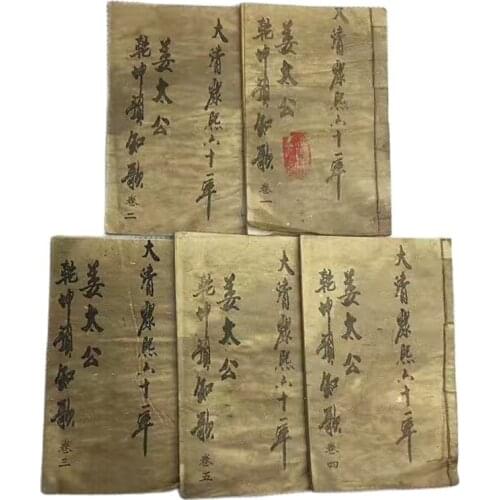 大清康熙六十一年
姜太公
乾坤預知歌 卷一
大清康熙六十一年
姜太公
乾坤預知歌 卷二
大清康熙六十一年
姜太公
乾坤預知歌 卷四
大清康熙六十一年
姜太公
乾坤預知歌 卷五
大清康熙六十一年
姜太公
乾坤預知歌 卷三